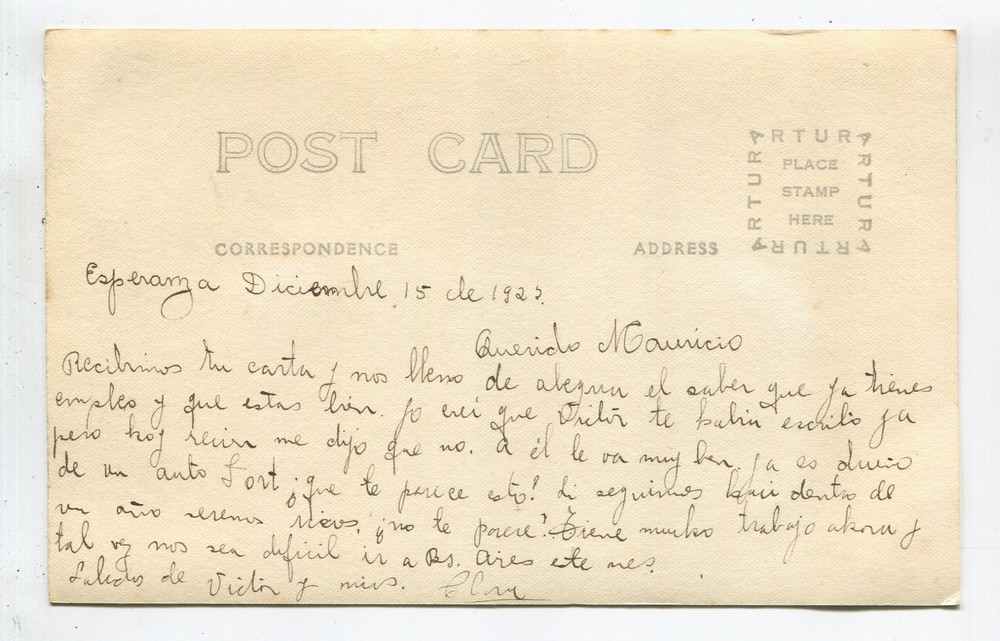 POST CARD
ARTURA
ARTURA
ARTURA
ARTURA
PLACE
STAMP
HERE
CORRESPONDENCE
ADDRESS
Esperanza Diciembre 15 de 192
Querido Mauricio
Recibimos tu carta y nos lleno de alegria el saber que ya tienes
empleo y que estas bien. yo creí que Victor te habia escrito ya
pero hoy recien me dijo que no. a él le va muy bien. ya es dueño
de un auto Fort, ¿que te parece esto? Si seguimos asi dentro de
un año seremos ricos, ¿no te parece? Tiene mucho trabajo ahora y
tal vez nos sea dificil ir a Bs. Aires este mes.
Saludos de Victor y mios. Clara